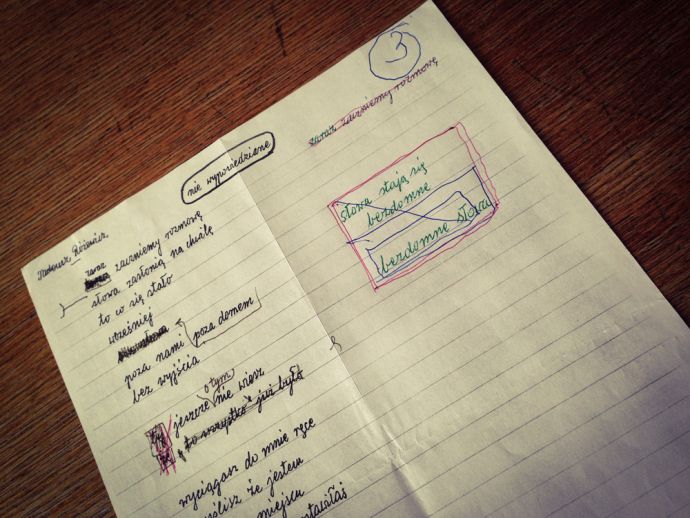 3
zaraz zaczniemy rozmowę
nie wypowiedziane
słowa stają się
bezdomne
bezdomne słowa
Tadeusz Różewicz
zaraz
zaczniemy rozmowę
słowa zasłonią na chwilę
to co się stało
wcześniej
poza domem
poza nami
bez wyjścia
o tym
jeszcze nie wiesz
to wszystko już było
wyciągasz do mnie ręce
myślisz że jestem
miejscu